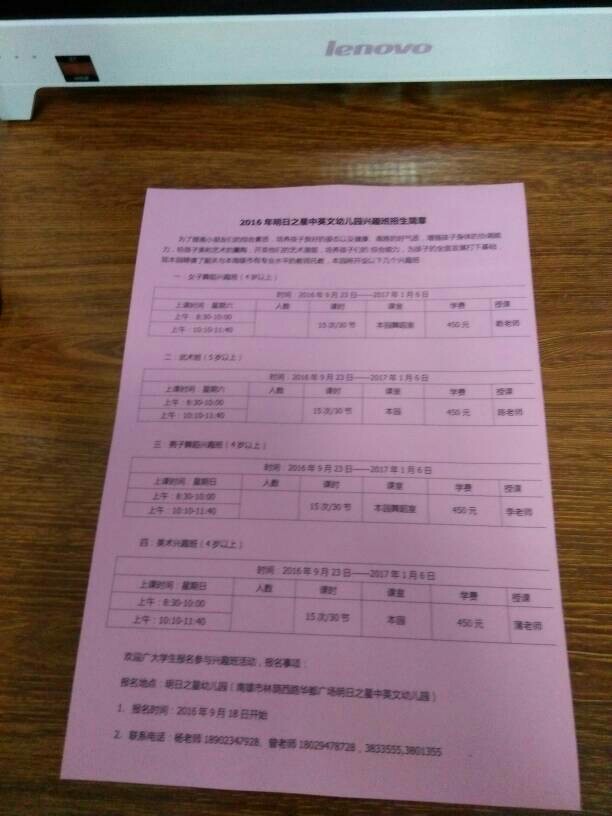 lenovo
2016年明日之星中英文幼儿园兴趣班招生简章
为了提高小朋友们的综合素质，培养孩子良好的姿态以及健康、高雅的好气质，增强孩子身体的协调能
力，给孩子美和艺术的熏陶，开发他们的艺术潜能，培养孩子们的综合能力，为孩子的全面发展打下基础，
现本园聘请了韶关与本南雄市有专业水平的教师任教，本园将开设以下几个兴趣班
一 女子舞蹈兴趣班（4岁以上）
时间：2016年9月23日——2017年1月6日
上课时间：星期六 人数 课时 课室 学费 授课
上午：8:30-10:00
15次/30节 本园舞蹈室 450元 老师
上午：10:10-11:40
二：武术班（5岁以上）
时间：2016年9月23日——2017年1月6日
上课时间：星期六 人数 课时 课室 学费 授课
上午：8:30-10:00
15次/30节 本园 450元 老师
上午：10:10-11:40
三 男子舞蹈兴趣班（4岁以上）
时间：2016年9月23日——2017年1月6日
上课时间：星期日 人数 课时 课室 学费 授课
上午：8:30-10:00
15次/30节 本园舞蹈室 450元 李老师
上午：10:10-11:40
四：美术兴趣班（4岁以上）
时间：2016年9月23日——2017年1月6日
上课时间：星期日 人数 课时 课室 学费 授课
上午：8:30-10:00
15次/30节 本园 450元 蒲老师
上午：10:10-11:40
欢迎广大学生报名参与兴趣班活动，报名事项：
报名地点：明日之星幼儿园（南雄市林荫西路华都广场明日之星中英文幼儿园）
1. 报名时间：2016年9月18日开始
2. 联系电话：杨老师18902347928、曾老师18029478728，3833555,3801355